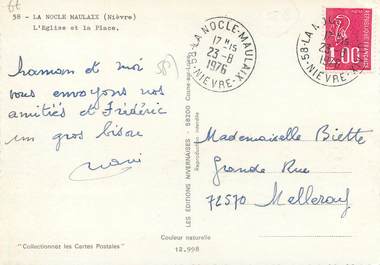 58 - LA NOCLE MAULAIX (Nièvre)
L'Eglise et la Place.
58-LA NOCLE-MAULAIX
17H15
23-8
1976
NIEVRE
58-LA N
23-8
1976
NIEVRE
REPUBLIQUE FRANÇAISE
1,00
POSTES
Maman et moi
vous envoyons nos
amitiés et Frédéric
un gros bisou
58
LES ÉDITIONS NIVERNAISES - 58200 Cosne-sur-Loire
Reproduction interdite
Mademoiselle Biette
Grande Rue
72570 Melleray
"Collectionnez les Cartes Postales"
Couleur naturelle
12.998